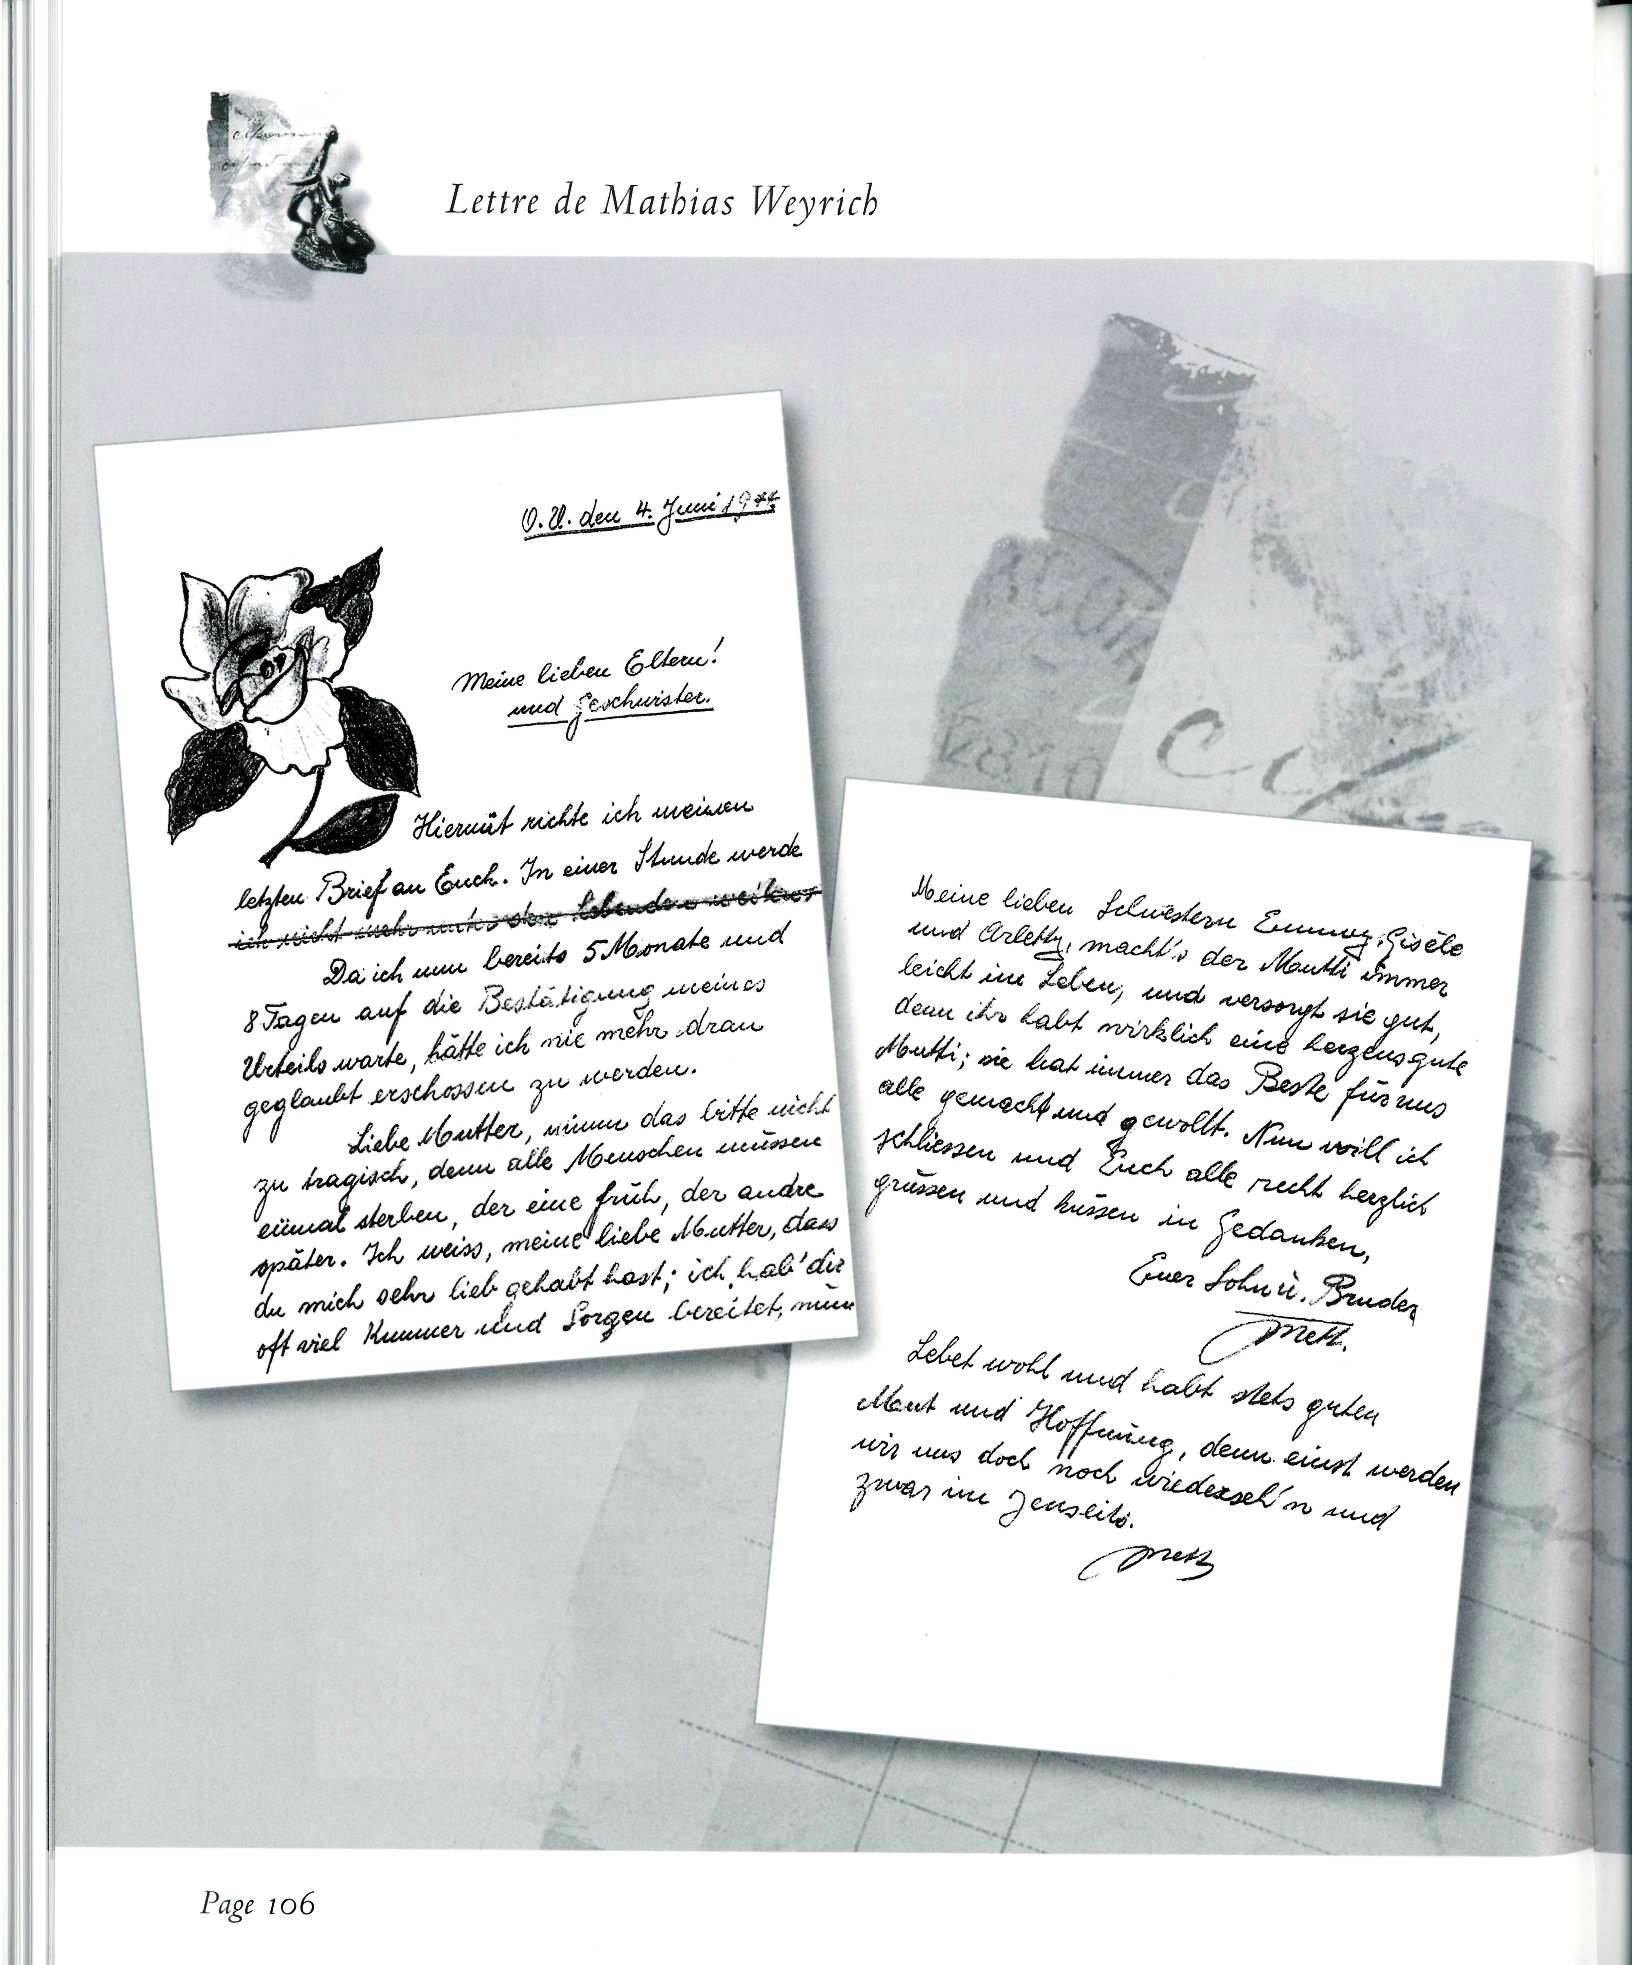 Lettre de Mathias Weyrich
O.U. den 4. Juni 1944
Meine lieben Eltern!
und Geschwister.
Hiermit richte ich meinen
letzten Brief an Euch. In einer Stunde werde
ich nicht mehr unter den lebenden weilen
Da ich nun bereits 5 Monate und
8 Tagen auf die Bestätigung meines
Urteils warte, hätte ich nie mehr dran
geglaubt erschossen zu werden.
Liebe Mutter, nimm das bitte nicht
zu tragisch, denn alle Menschen müssen
einmal sterben, der eine früh, der andre
später. Ich weiss, meine liebe Mutter, dass
du mich sehr lieb gehabt hast; ich hab' dir
oft viel Kummer und Sorgen bereitet, nun
Meine lieben Schwestern Emmy, Gisèle
und Arletty, macht's der Mutti immer
leicht im Leben, und versorgt sie gut,
denn ihr habt wirklich eine herzensgute
Mutti; sie hat immer das Beste für uns
alle gemacht und gewollt. Nun will ich
schliessen und Euch alle recht herzlich
grüssen und küssen in Gedanken,
Euer Sohn u. Bruder
Mett.
Lebet wohl und habt stets guten
Mut und Hoffnung, denn einst werden
wir uns doch noch wiederseh'n und
zwar im Jenseits.
Mett
Page 106